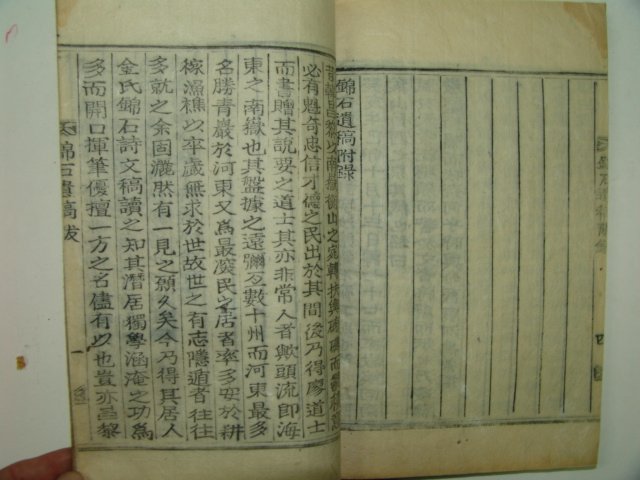 錦石遺稿附錄
必有魁奇忠信才德之民出於其間後乃得廖道士
而書贈其說要之道士其亦非常人者歟頭流卽海
東之南嶽也其盤據之遠彌亙數十州而河東最多
名勝靑巖於河東又爲最深民之居者率多安於耕
稼漁樵以卒歲無求於世故世之有志隱遁者往往
多就之余固灑然有一見之願久矣今乃得其居人
金氏錦石詩文稿讀之知其潛居獨學涵淹之功爲
多而開口揮筆優擅一方之名儘有以也豈亦昌黎
錦石遺稿跋
一